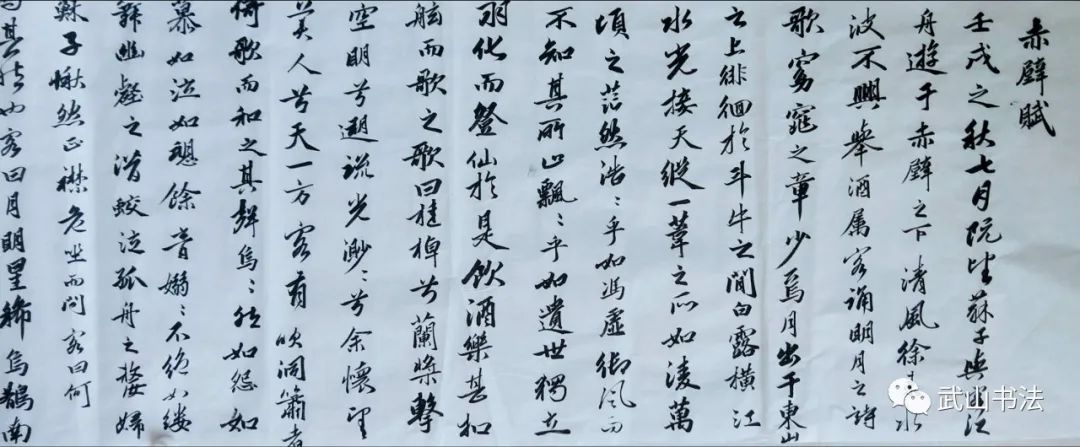 赤壁賦
壬戌之秋七月既望蘇子與客泛
舟遊于赤壁之下清風徐來水
波不興舉酒属客誦明月之詩
歌窈窕之章少焉月出于東山
之上徘徊於斗牛之間白露橫江
水光接天縱一葦之所如淩萬
頃之茫然浩〻乎如馮虛御風而
不知其所止飄〻乎如遺世獨立
羽化而登仙於是飲酒樂甚扣
舷而歌之歌曰桂棹兮蘭槳擊
空明兮遡流光渺〻兮余懷望
美人兮天一方客有吹洞簫者
倚歌而和之其聲烏〻然如怨如
慕如泣如愬餘音嫋〻不絕如縷
舞幽壑之潛蛟泣孤舟之嫠婦
蘇子愀然正襟危坐而問客曰何
為其然也客曰月明星稀烏鵲南
武山书法